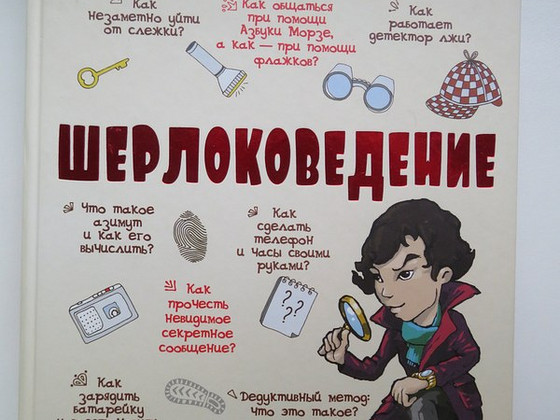 Как
незаметно уйти
от слежки?
Как общаться
при помощи
Азбуки Морзе,
а как — при помощи
флажков?
Как
работает
детектор лжи?
ШЕРЛОКОВЕДЕНИЕ
Что такое
азимут
и как его
вычислить?
Как
сделать
телефон
и часы своими
руками?
Как
прочесть
невидимое
секретное
сообщение?
? ?
? ?
Как
зарядить
батарейку
Дедуктивный метод:
что это такое?